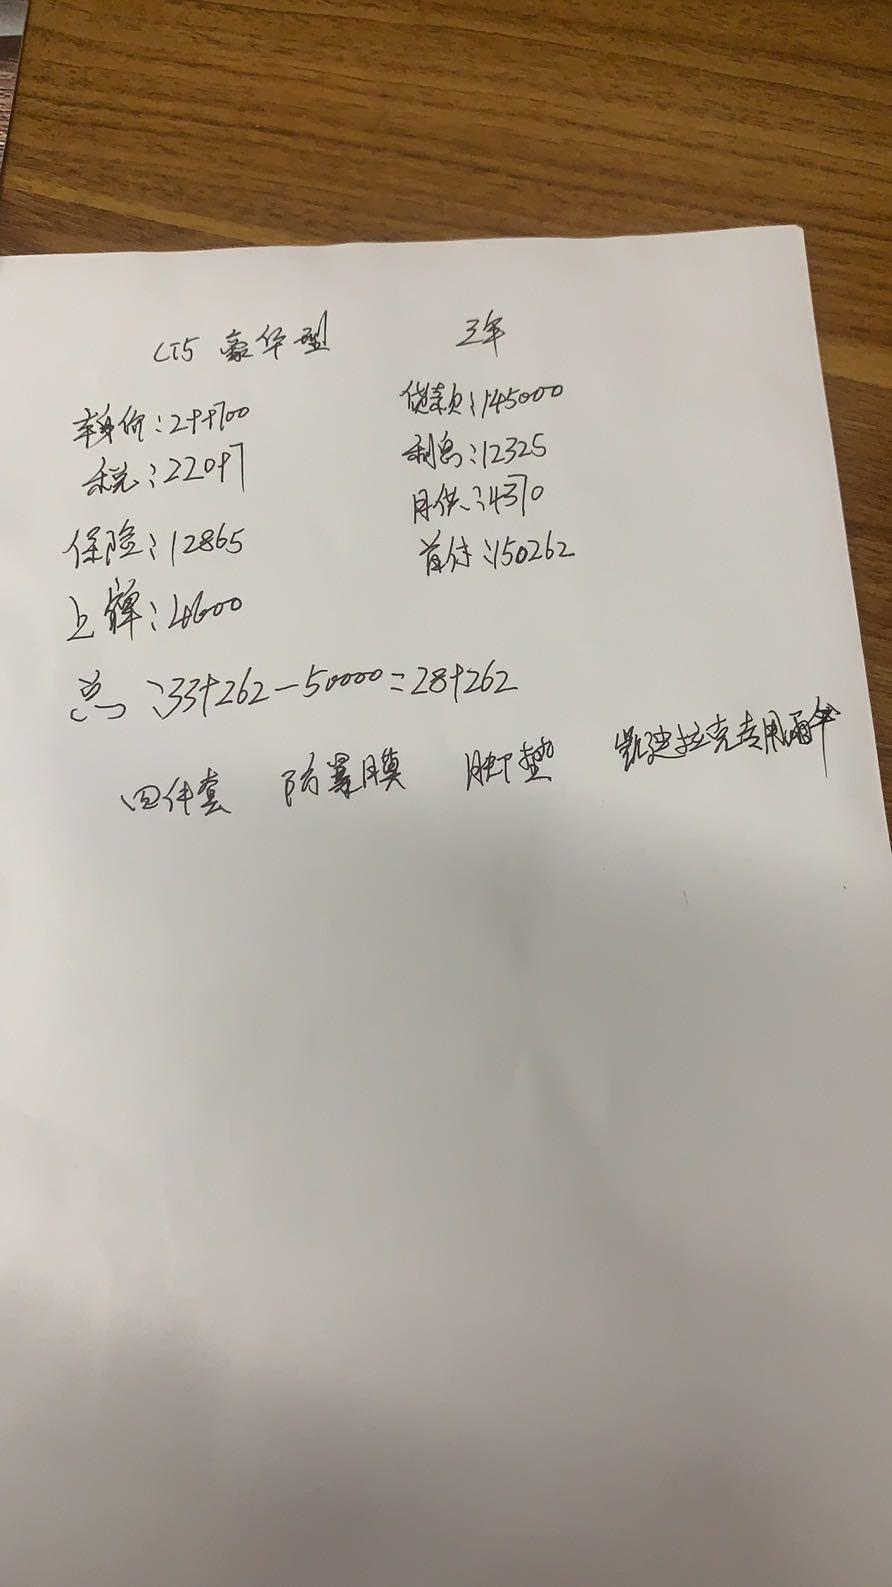 CT5 豪华型 三年
车身价:299700 贷款:145000
税:22097 利息:12325
保险:12865 月供:4370
上牌:4600 首付:150262
总:339262-50000=289262
四件套 防暴膜 脚垫 凯迪拉克专用雨伞